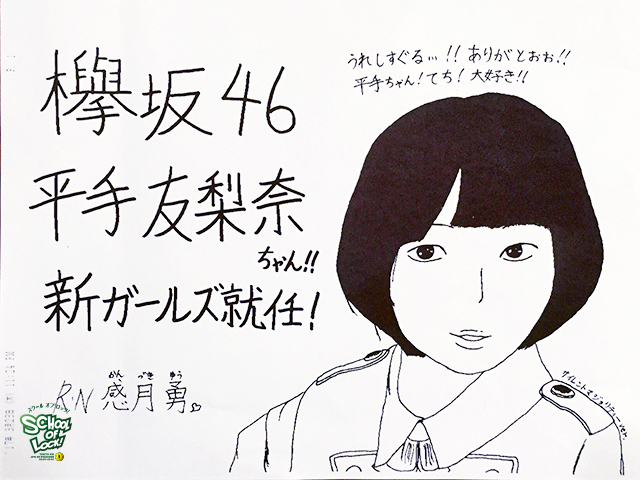 欅坂46
平手友梨奈
ちゃん!!
新ガールズ就任!
R.N 感月勇
かん づき ゆう
うれしすぐるぅぅ!! ありがとおぉ!!
平手ちゃん!てち!大好き!!
サイレントマジョリティーver.
スクール オブ ロック!
SCHOOL
OF
LOCK!